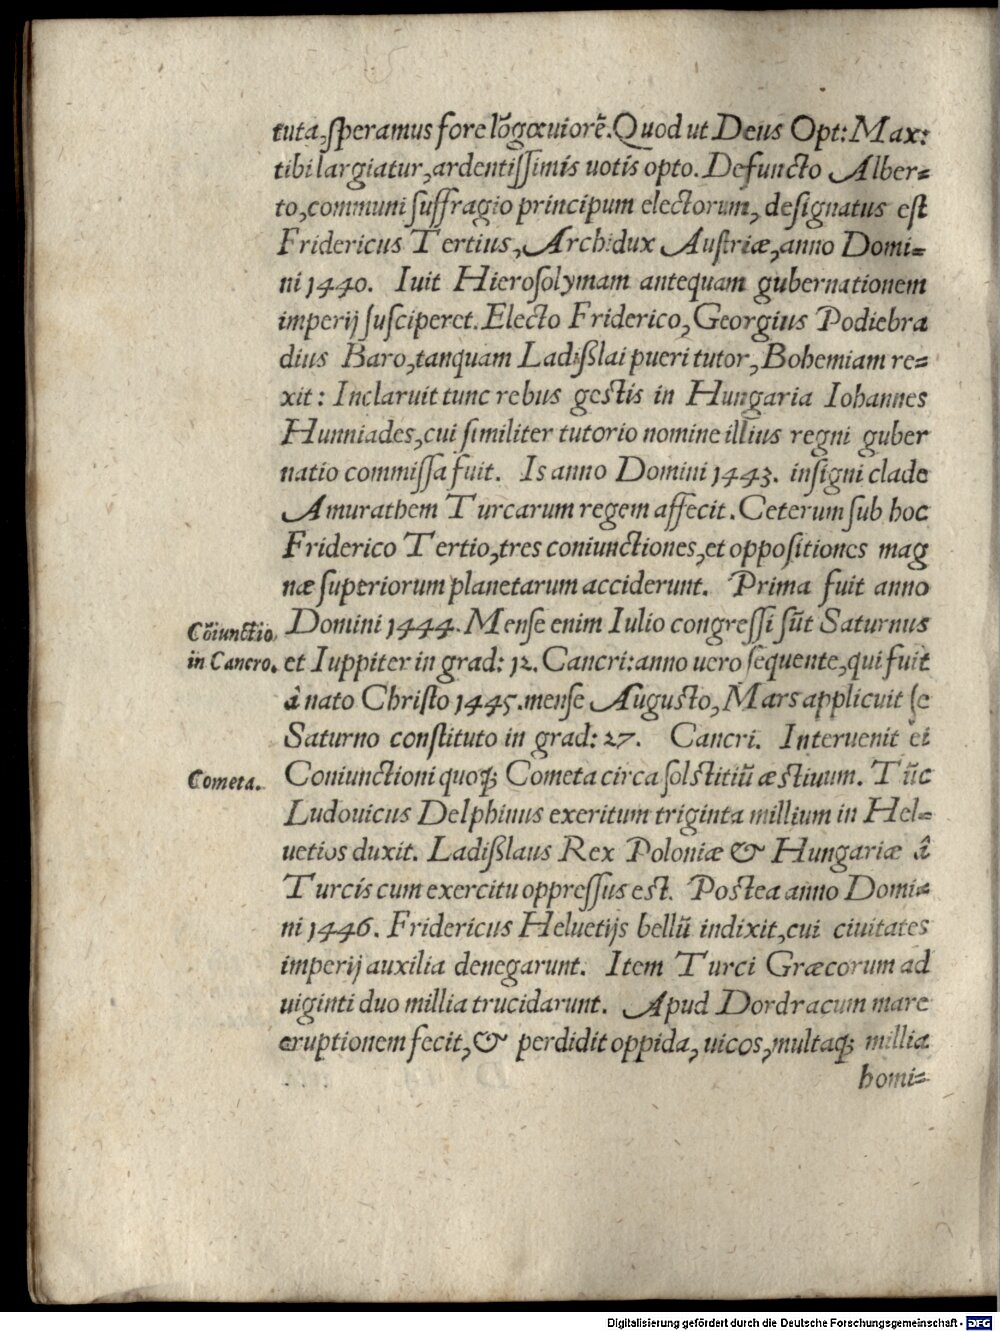 tuta, speramus fore lõgæuiorẽ. Quod ut Deus Opt: Max:
tibi largiatur, ardentissimis uotis opto. Defuncto Alber=
to, communi suffragio principum electorum, designatus est
Fridericus Tertius, Archidux Austriæ, anno Domi=
ni 1440. Iuit Hierosolymam antequam gubernationem
imperij susciperet. Electo Friderico, Georgius Podiebra
dius Baro, tanquam Ladißlai pueri tutor, Bohemiam re=
xit: Inclaruit tunc rebus gestis in Hungaria Iohannes
Hunniades, cui similiter tutorio nomine illius regni guber
natio commissa fuit. Is anno Domini 1443. insigni clade
Amurathem Turcarum regem affecit. Ceterum sub hoc
Friderico Tertio, tres coniunctiones, et oppositiones mag
næ superiorum planetarum acciderunt. Prima fuit anno
Cõiunctio Domini 1444. Mense enim Iulio congressi sũt Saturnus
in Cancro. et Iuppiter in grad: 12. Cancri: anno uero sequente, qui fuit
â nato Christo 1445. mense Augusto, Mars applicuit se
Saturno constituto in grad: 27. Cancri. Interuenit ei
Cometa. Coniunctioni quoq; Cometa circa solstitiũ æstiuum. Tũc
Ludouicus Delphinus exeritum triginta millium in Hel=
uetios duxit. Ladißlaus Rex Poloniæ & Hungariæ â
Turcis cum exercitu oppressus est. Postea anno Domi=
ni 1446. Fridericus Heluetijs bellũ indixit, cui ciuitates
imperij auxilia denegarunt. Item Turci Græcorum ad
uiginti duo millia trucidarunt. Apud Dordracum mare
eruptionem fecit, & perdidit oppida, uicos, multaq; millia
homi=
Digitalisierung gefördert durch die Deutsche Forschungsgemeinschaft - DFG